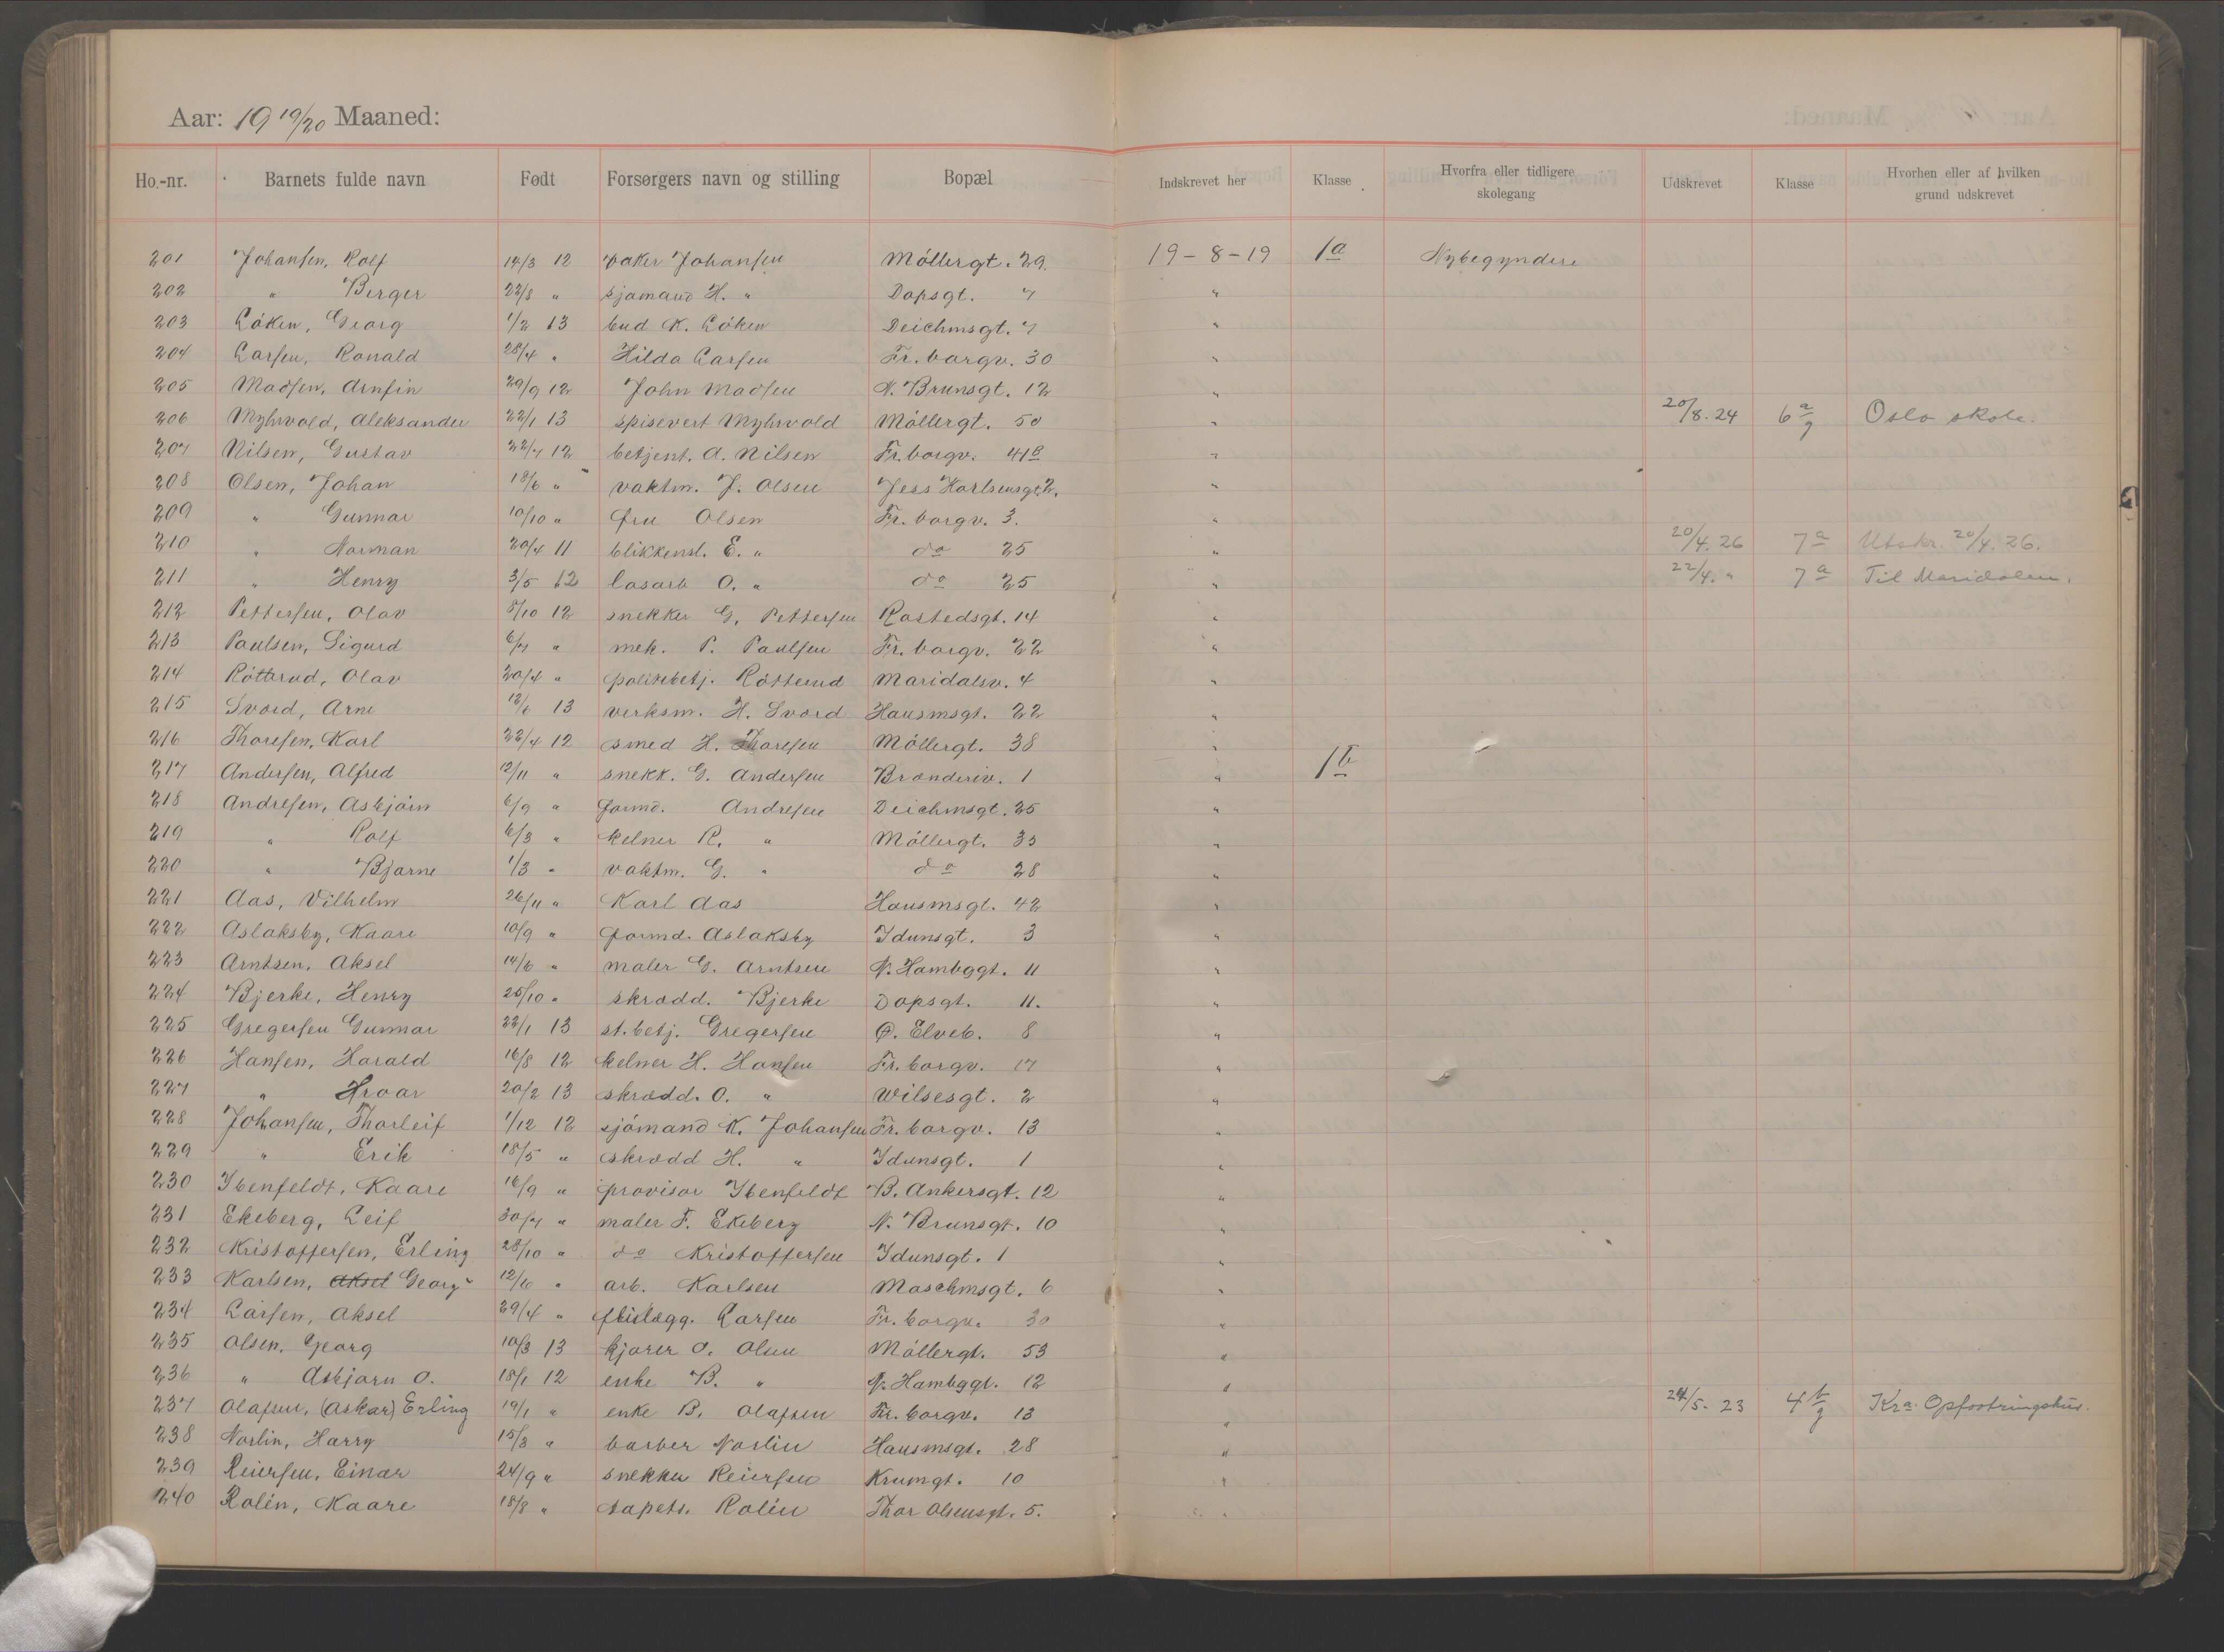 Aar: 19 19/20 Maaned:
Ho.-nr. Barnets fulde navn Født Forsørgers navn og stilling Bopæl Indskrevet her Klasse Hvorfra eller tidligere skolegang Udskrevet Klasse Hvorhen eller af hvilken grund udskrevet
201 Johansen, Rolf 14/3 12 Johansen Møllergt. 29. 19-8-19 1a Nybegyndere
202 " Berger 22/8 " sjømand H. " Dopsgt. 7 "
203 Løken, Georg 1/2 13 bud K. Løken Deichmsgt. 7 "
204 Larsen, Ronald 28/4 " Hilda Larsen Fr. borgv. 30 "
205 Madsen, Arnfin 29/9 12 John Madsen N. Brunsgt. 12 "
206 Myhrvold, Aleksander 22/1 13 spisevert Myhrvold Møllergt. 50 " 20/8. 24 6a/g Oslo skole.
207 Nilsen, Gustav 22/7 12 betjent. A. Nilsen Fr. borgv. 41B "
208 Olsen, Johan 18/6 " vaktm. J. Olsen Jess Karlsensgt. 2. "
209 " Gunnar 10/10 " fru Olsen Fr. borgv. 3. "
210 " Norman 20/4 11 blikkensl. E. " do 25 " 20/4. 26 7a Utskr. 20/4. 26.
211 " Henry 3/5 12 løsarb O. " do 25 " 22/4. " 7a Til Maridalen.
212 Pettersen, Olav 8/10 12 snekker G. Pettersen Rostedsgt. 14 "
213 Paulsen, Sigurd 6/7 " mek. P. Paulsen Fr. borgv. 22 "
214 Røtterud, Olav 20/4 " politibetj. Røtterud Maridalsv. 4 "
215 Svord, Arne 12/1 13 verksm. H. Svord Hausmsgt. 22 "
216 Thoresen, Karl 22/4 12 smed H. Thoresen Møllergt. 38 "
217 Andersen, Alfred 12/11 " snekk. G. Andersen Brenderiv. 1 " 1b
218 Andresen, Asbjørn 6/9 " formd. Andresen Deichmsgt. 25 "
219 " Rolf 6/3 " kelner R. " Møllergt. 35 "
220 " Bjarne 1/3 " vaktm. G. " do 28 "
221 Aas, Vilhelm 26/11 " Karl Aas Hausmsgt. 42 "
222 Aslaksby, Kaare 10/9 " formd. Aslaksby Idunsgt. 3 "
223 Arntsen, Aksel 14/6 " maler G. Arntsen N. Hambggt. 11 "
224 Bjerke, Henry 25/10 " skrædd. Bjerke Dopsgt. 11. "
225 Gregersen Gunnar 22/1 13 st. betj. Gregersen Ø. Elveb. 8 "
226 Hansen, Harald 16/8 12 kelner H. Hansen Fr. borgv. 17 "
227 " Hroar 20/2 13 skrædd. O. " Wilsesgt. 2 "
228 Johansen, Thorleif 1/12 12 sjømand K. Johansen Fr. borgv. 13 "
229 " Erik 18/5 " skrædd H. " Idunsgt. 1 "
230 Ibenfeldt, Kaare 16/9 " provisor Ibenfeldt B. Ankersgt. 12 "
231 Ekeberg, Leif 30/7 " maler F. Ekeberg N. Brunsgt. 10 "
232 Kristoffersen, Erling 28/10 " do Kristoffersen Idunsgt. 1 "
233 Karlsen, Aksel Georg 12/6 " arb. Karlsen Maschmsgt. 6 "
234 Larsen, Aksel 29/4 " Larsen Fr. borgv. 30 "
235 Olsen, Georg 10/3 13 kjører O. Olsen Møllergt. 53 "
236 " Asbjørn O. 18/1 12 enke B. " N. Hambggt. 12 "
237 Olafsen, (Oskar) Erling 19/1 " enke B. Olafsen Fr. borgv. 13 " 24/5. 23 4b/g Kra. Opfostringshus.
238 Norlin, Harry 15/3 " barber Norlin Hausmsgt. 28 "
239 Reiersen, Einar 24/9 " snekker Reiersen Krumgt. 10 "
240 Rolén, Kaare 18/8 " tapets. Rolén Thor Olsensgt. 5. "